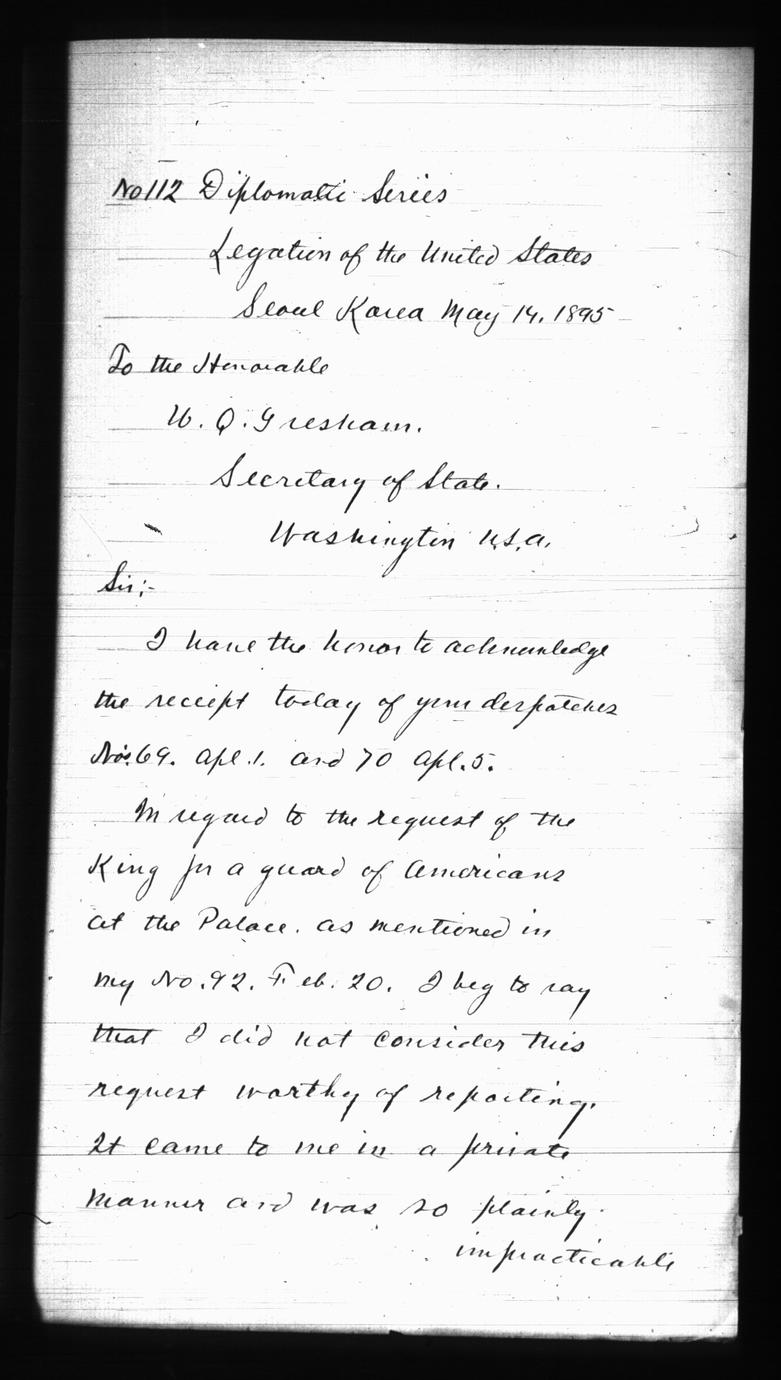 No 112 Diplomatic Series
Legation of the United States
Seoul Korea May 14, 1895
To the Honorable
W. Q. Gresham.
Secretary of State.
Washington U.S.A.
Sir;-
I have the honor to acknowledge
the receipt today of your despatches
Nos. 69. Apl. 1. and 70 Apl. 5.
In regard to the request of the
King for a guard of Americans
at the Palace. as mentioned in
my No. 92. Feb. 20. I beg to say
that I did not consider this
request worthy of reporting.
It came to me in a private
manner and was so plainly
impracticable